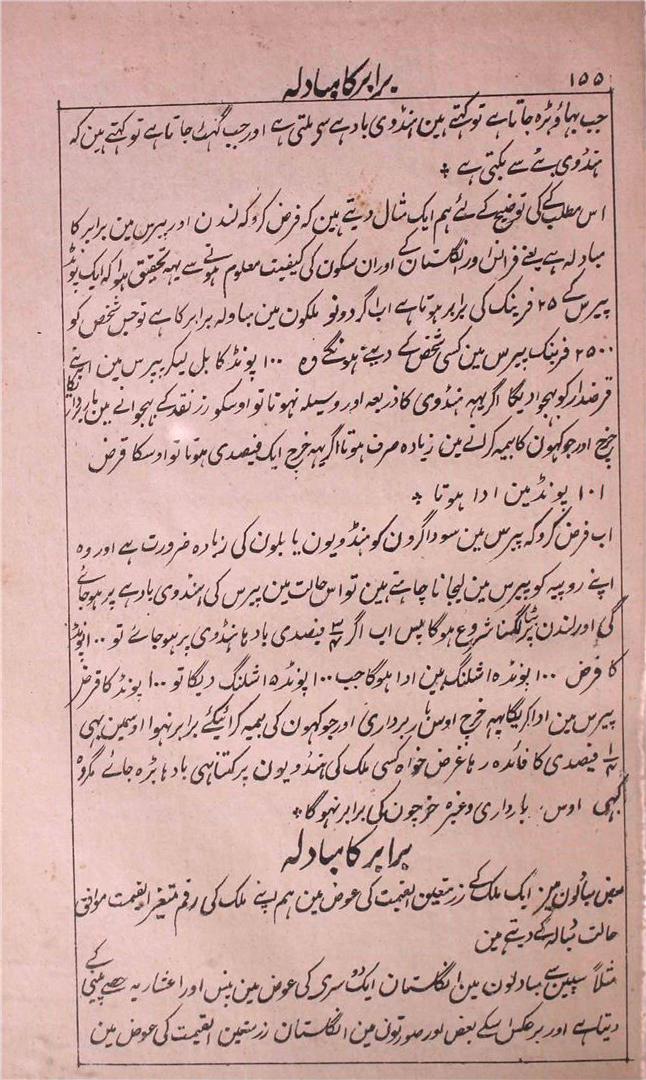 ۱۵۵ برابر کا مبادلہ
جب بھاؤ بڑہ جاتا ہے تو کہتے ہین ہنڈوی بادہے سی ملتی ہے اور جب گہٹ جاتا ہے تو کہتے ہین کہ
ہنڈوی بٹے سے بکتی ہے *
اس مطلب کے کی توضیح کے لئے ہم ایک مثال دیتے ہین کہ فرض کرو کہ لندن اور پیرس مین برابر کا
مبادلہ ہے یعنے فرانس اور انگلستان کے اور ان سکون کی کیفیت معلوم ہونے سے یہہ تحقیق ہوا کہ ایک پونڈ
پیرس کے ۲۵ فرینک کی برابر ہوتا ہے اب اگر دونو ملکون مین مبادلہ برابر کا ہے تو جس شخص کو
۲۵۰۰ فرینک پیرس مین کسی شخص کے دینے ہونگے وہ ۱۰۰ پونڈ کا بل لیکر پیرس مین اپنے
قرضدار کو بہجوا دیگا اگر یہہ ہنڈوی کا ذریعہ اور وسیلہ نہوتا تو اوسکو زر نقد کے بہجوانے مین باربرداری کا
خرچ اور جوکہون کا بیمہ کرانے مین زیادہ صرف ہوتا اگر یہہ خرچ ایک فیصدی ہوتا تو اوسکا قرض
۱۰۱ پونڈ مین ادا ہوتا *
اب فرض کرو کہ پیرس مین سوداگرون کو ہنڈویون یا بلون کی زیادہ ضرورت ہے اور وہ
اپنے روپیہ کو پیرس مین لیجانا چاہتے ہین تو اس حالت مین پیرس کی ہنڈوی بادہے پر ہو جائے
گی اور لندن پر بٹا لگنا شروع ہوگا پس اب اگر ۳/۴ فیصدی بادہا ہنڈوی پر ہو جائے تو ۱۰۰ پونڈ
کا قرض ۱۰۰ پونڈ ۱۵ شلنگ مین ادا ہوگا جب ۱۰۰ پونڈ ۱۵ شلنگ دیگا تو ۱۰۰ پونڈ کا قرض
پیرس مین ادا کریگا یہہ خرچ اوس باربرداری اور جوکہون کی بیمہ کرائیکے برابر نہوا اوسمین یہی
۱/۴ فیصدی کا فائدہ رہا غرض خواہ کسی ملک کی ہنڈویون پر کتنا ہی بادہا بڑہ جائے مگر وہ
کبہی اوس باربرداری وغیرہ خرچون کی برابر نہوگا *
برابر کا مبادلہ
بعض مبادلون مین ایک ملک کے زر متعین القیمت کی عوض مین ہم اپنے ملک کی رقم متغیر القیمت موافق
حالت مبادلہ کے دیتے ہین
مثلاً سپین سے مبادلون مین انگلستان ایک دوسری کی عوض مین پنس اور اعشاریہ حصے پینی کے
دیتا ہے اور برعکس اسکے بعض اور صورتون مین انگلستان زر متعین القیمت کی عوض مین